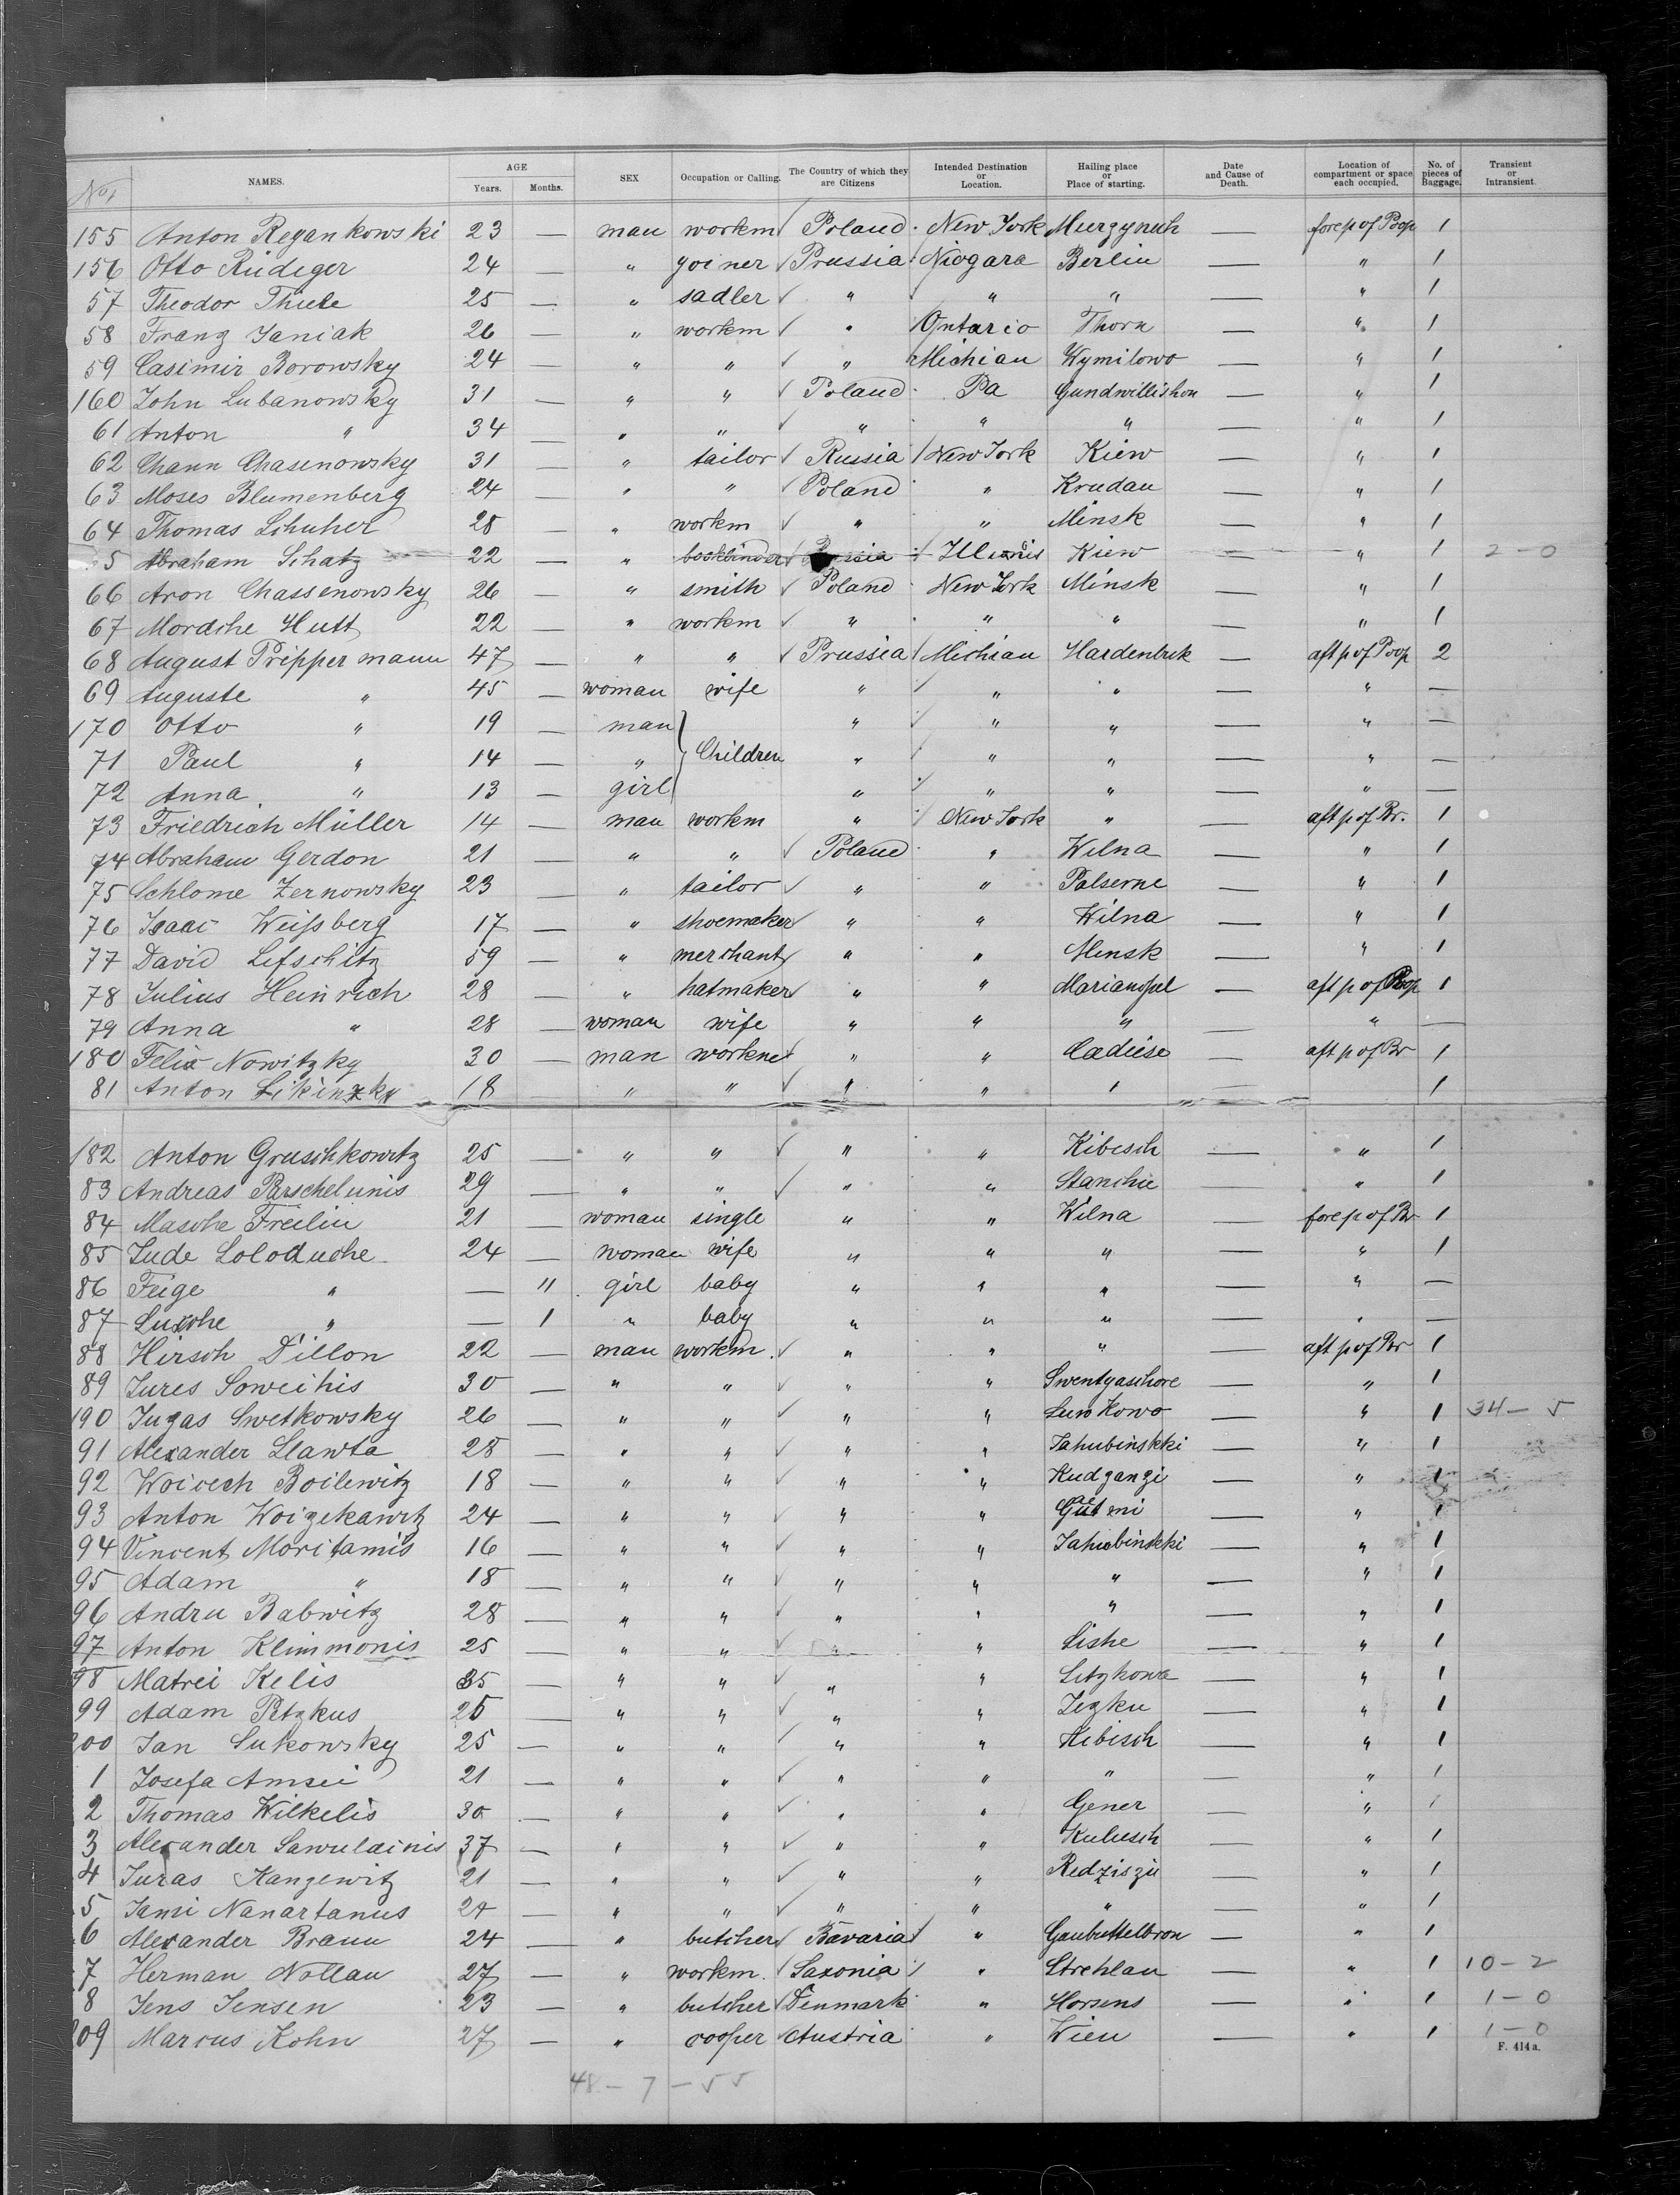 No. NAMES. AGE Years. Months. SEX Occupation or Calling. The Country of which they are Citizens Intended Destination or Location. Hailing place or Place of starting. Date and Cause of Death. Location of compartment or space each occupied. No. of pieces of Baggage. Transient or Intransient.
155 Anton Regankowski 23 — man workm Poland New York Murzynuh — forep of Poop 1
156 Otto Rüdeger 24 — " yoiner Prussia Niogara Berlin — " 1
57 Theodor Thiele 25 — " sadler " " " — " 1
58 Franz Janiak 26 — " workm " Ontario Thorn — " 1
59 Casimir Borowsky 24 — " " " Michian Wymilowo — " 1
160 John Lubanowsky 31 — " " Poland Pa Gundwillishon — " 1
61 Anton " 34 — " " " " " — " 1
62 Chann Chasenowsky 31 — " tailor Russia New York Kiew — " 1
63 Moses Blumenberg 24 — " " Poland " Krudau — " 1
64 Thomas Schuher 28 — " workm " " Minsk — " 1
5 Abraham Schatz 22 — " bookbinder Russia Illinois Kiew — " 1 2–0
66 Aron Chassenowsky 26 — " smith Poland New York Minsk — " 1
67 Mordche Hutt 22 — " workm " " " — " 1
68 August Prippermann 47 — " " Prussia Michian Hardenbuk — aft p of Poop 2
69 Auguste " 45 — woman wife " " " — " —
170 Otto " 19 — man " " " — " —
71 Paul " 14 — " Children " " " — " —
72 Anna " 13 — girl " " " — " —
73 Friedrich Müller 14 — man workm " New York " — aft p of Br. 1
74 Abraham Gerdon 21 — " " Poland " Wilna — " 1
75 Schlome Zernowsky 23 — " tailor " " Palserne — " 1
76 Isaac Weißberg 17 — " shoemaker " " Wilna — " 1
77 David Lefschitz 59 — " merchant " " Minsk — " 1
78 Julius Heinrich 28 — " hatmaker " " Marianopel — aft p of Poop 1
79 Anna " 28 — woman wife " " " — " —
180 Felix Nowitzky 30 — man " " Cadiese — aft p of Br 1
81 Anton 18 — " " " " " — 1
182 Anton Gruschkowitz 25 — " " " " Kibesch — " 1
83 Andreas Parschelunis 29 — " " " " Stanchie — " 1
84 Masche Freilin 21 — woman single " " Wilna — forep of Br 1
85 Jude Soloduche 24 — woman wife " " " — " 1
86 Feige " — 11 girl baby " " " — " —
87 " — 1 " baby " " " — " —
88 Hirsch Dillon 22 — man workm. " " " — aft p of Br 1
89 Jures Soweihis 30 — " " " " Swentyaschore — " 1
190 Jugas Swetkowsky 26 — " " " " Luwkowo — " 1 34–5
91 Alexander Slawta 28 — " " " " Jahubinskki — " 1
92 Woicech Boilewitz 18 — " " " " Kudganzi — " 1
93 Anton Woizekawitz 24 — " " " " — " 1
94 Vincent Moritamis 16 — " " " " Jahubinkki — " 1
95 Adam " 18 — " " " " " — " 1
96 Andru Babwitz 28 — " " " " " — " 1
97 Anton Klimmonis 25 — " " " Lishe — " 1
98 Matrei Kelis 35 — " " " " Litzkowa — " 1
99 Adam Petzkus 25 — " " " " Jezku — " 1
200 Jan Sukowsky 25 — " " " " Kibisch — " 1
1 Josefa Amsei 21 — " " " " " — " 1
2 Thomas Wilkelis 30 — " " " " Gener — " 1
3 Alexander Sawulainis 37 — " " " " Kulusch — " 1
4 Juras Kangewitz 21 — " " " " Redziszie — " 1
5 Jansi Nanartanus 24 — " " " " " — " 1
6 Alexander Braun 24 — " butcher Bavaria " Gaubuttelbron — " 1
7 Herman Nollau 27 — " workm. Saxonia " Strehlau — " 1 10–2
8 Jens Jensen 23 — " butcher Denmark " Horsens — " 1 1–0
209 Marcus Kohn 27 — " cooper Austria " Wien — " 1 1–0
F. 414a.
48–7–55